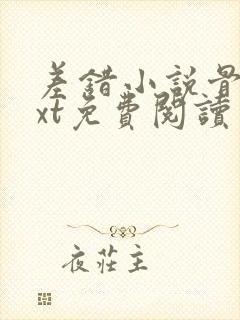 差錯小説骨
xt免費閱讀
夜莊主